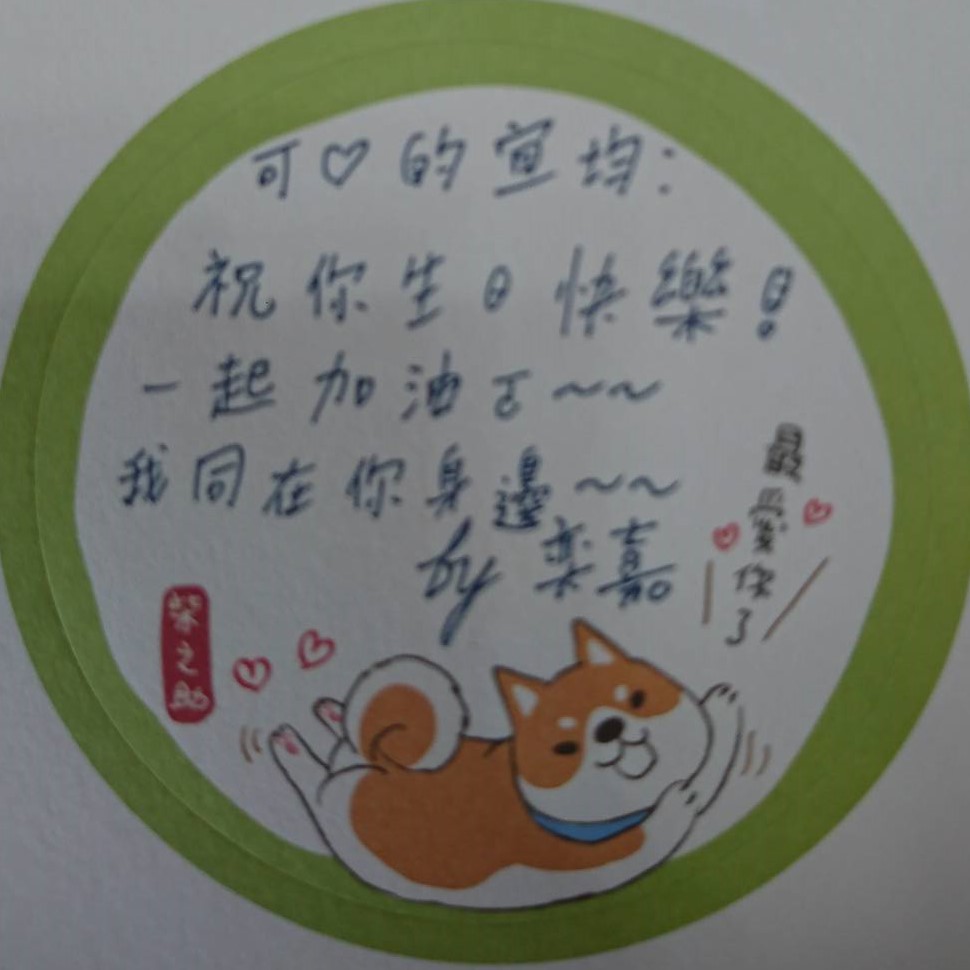 可♡的宜均：
祝你生日快樂！
一起加油ㄛ～～
我同在你身邊～～
by 奕嘉
最愛你了
柴之助